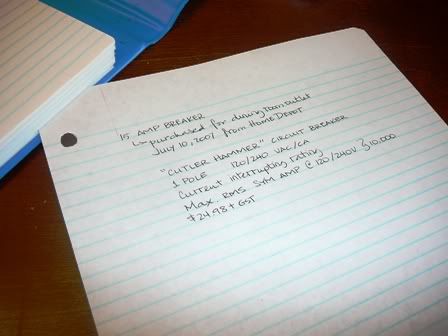 15 AMP BREAKER
↳ purchased for dining room outlet
July 10, 2007 from Home DEPOT
"CUTLER HAMMER" CIRCUIT BREAKER
1 POLE 120/240 VAC/CA
Current interrupting rating
Max. RMS SYM AMP @ 120/240V } 10,000
$24.98 + GST